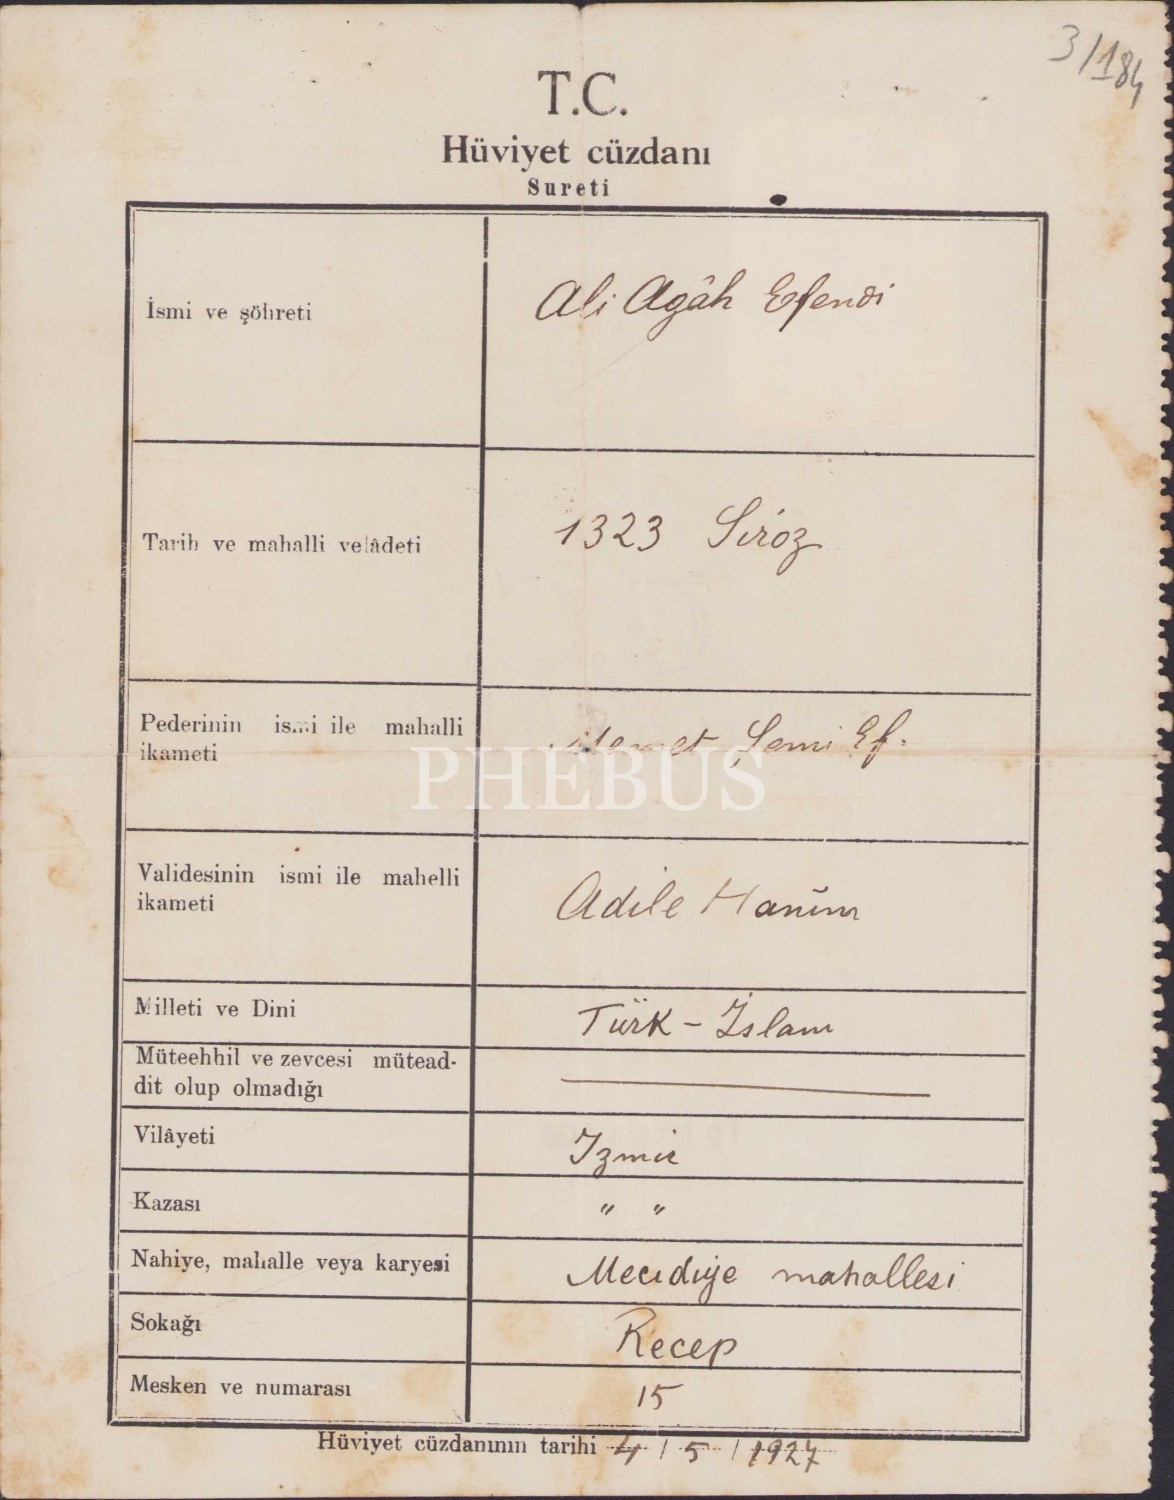 3/184
T.C.
Hüviyet cüzdanı
Sureti
İsmi ve şöhreti
Ali Agâh Efendi
Tarih ve mahalli velâdeti
1323 Siroz
Pederinin ismi ile mahalli
ikameti
Memet Şemi Ef.
PHEBUS
Validesinin ismi ile mahelli
ikameti
Adile Hanım
Milleti ve Dini
Türk - İslam
Müteehhil ve zevcesi mütead-
dit olup olmadığı
Vilâyeti
İzmir
Kazası
" "
Nahiye, mahalle veya karyesi
Mecidiye mahallesi
Sokağı
Recep
Mesken ve numarası
15
Hüviyet cüzdanının tarihi 4 / 5 / 1927